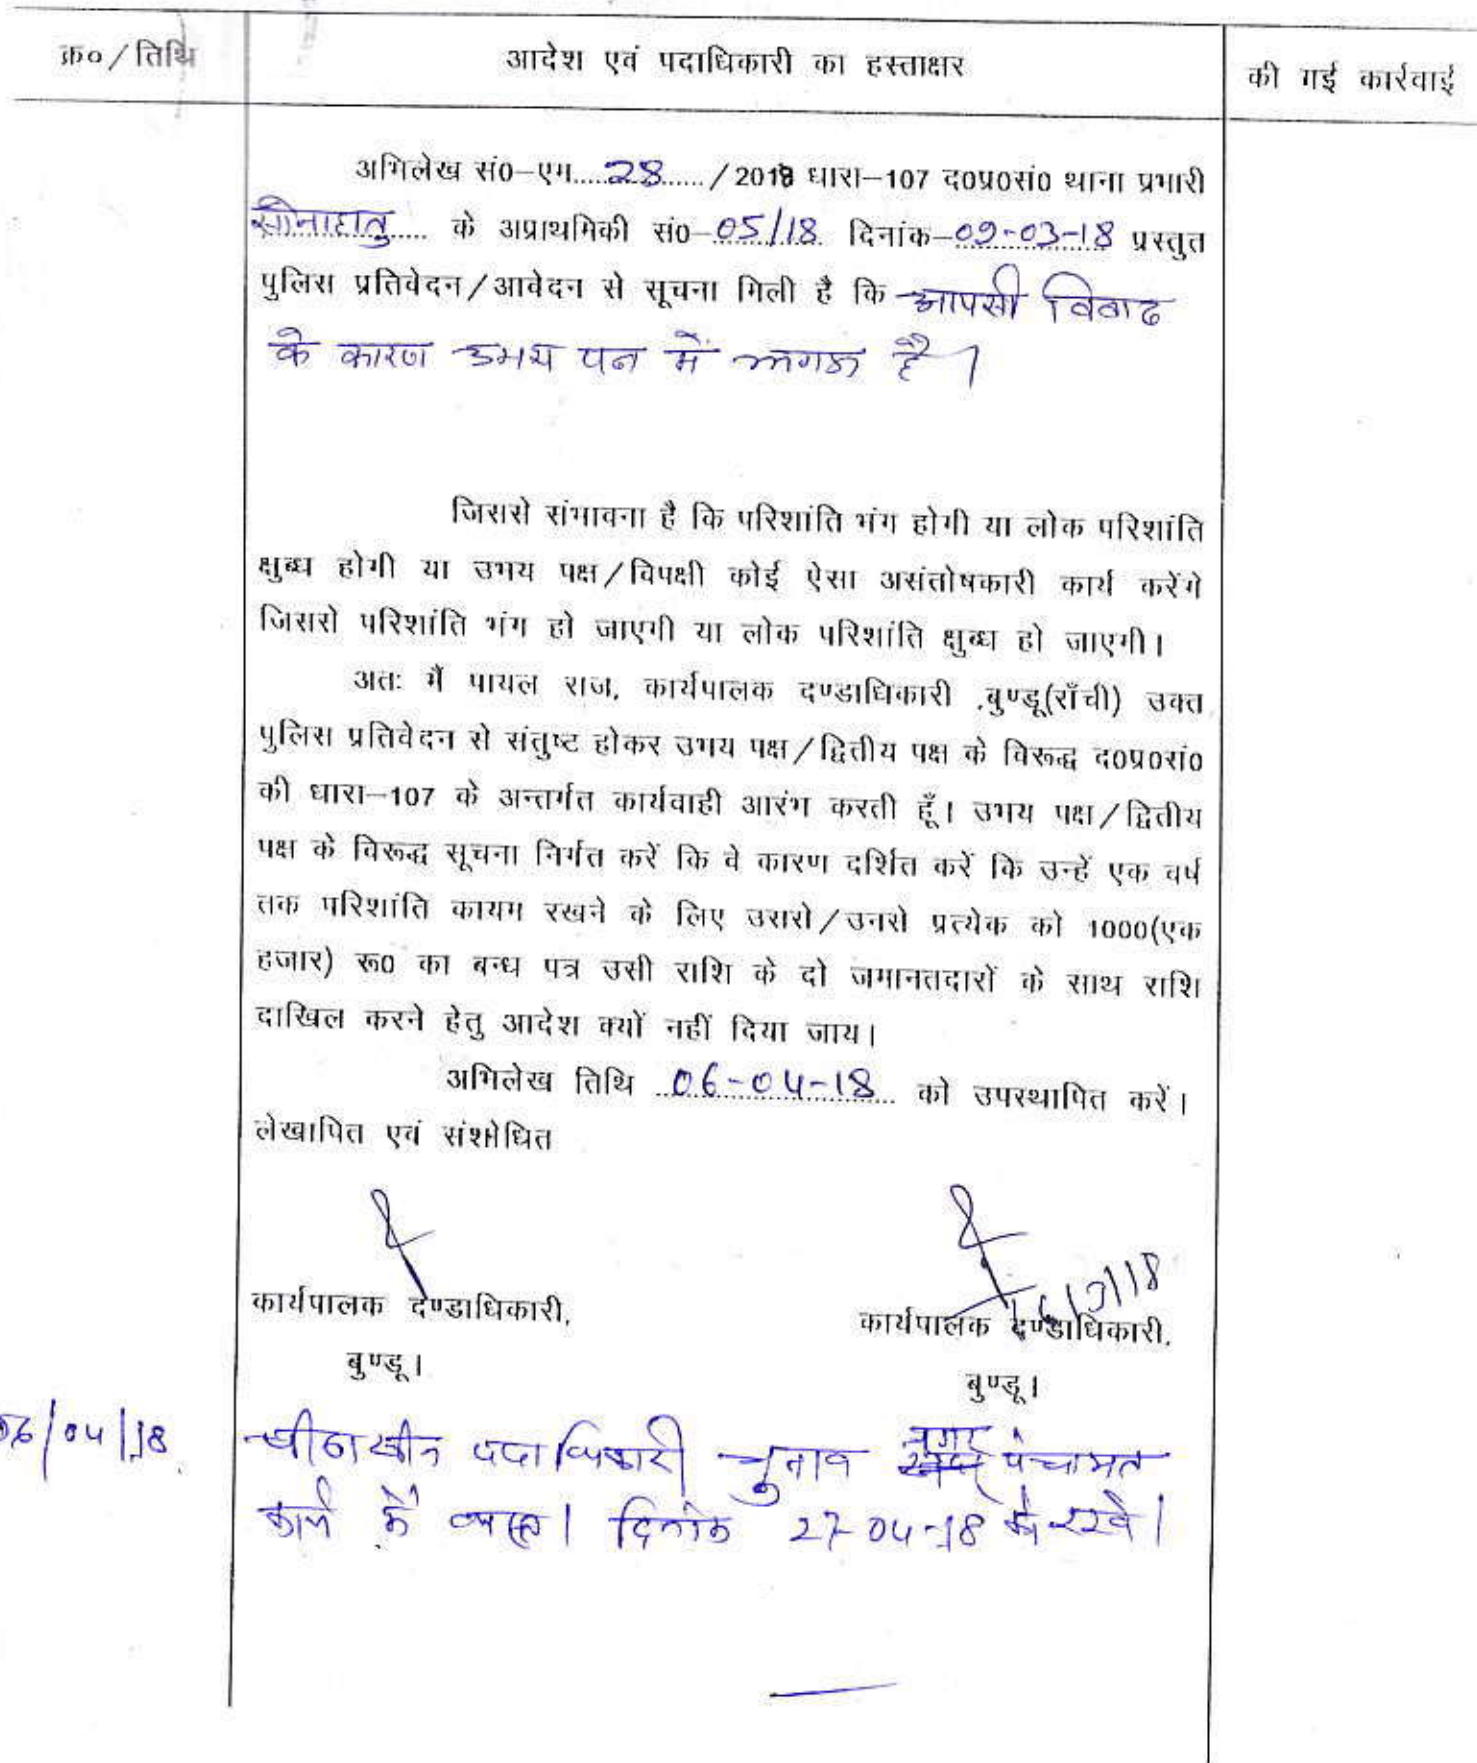 क्र०/तिथि
आदेश एवं पदाधिकारी का हस्ताक्षर
की गई कार्रवाई
अभिलेख सं०-एम.....28...../2018 धारा-107 द०प्र०सं० थाना प्रभारी
सोनाहातु..... के अप्राथमिकी सं०-05/18 दिनांक-09-03-18 प्रस्तुत
पुलिस प्रतिवेदन/आवेदन से सूचना मिली है कि आपसी विवाद
के कारण उभय पक्ष में है।
जिससे संभावना है कि परिशांति भंग होगी या लोक परिशांति
क्षुब्ध होगी या उभय पक्ष/विपक्षी कोई ऐसा असंतोषकारी कार्य करेंगे
जिससे परिशांति भंग हो जाएगी या लोक परिशांति क्षुब्ध हो जाएगी।
अतः मैं पायल राज, कार्यपालक दण्डाधिकारी ,बुण्डू(राँची) उक्त
पुलिस प्रतिवेदन से संतुष्ट होकर उभय पक्ष/द्वितीय पक्ष के विरूद्ध द०प्र०सं०
की धारा-107 के अन्तर्गत कार्यवाही आरंभ करती हूँ। उभय पक्ष/द्वितीय
पक्ष के विरूद्ध सूचना निर्गत करें कि वे कारण दर्शित करें कि उन्हें एक वर्ष
तक परिशांति कायम रखने के लिए उससे/उनसे प्रत्येक को 1000(एक
हजार) रू० का बन्ध पत्र उसी राशि के दो जमानतदारों के साथ राशि
दाखिल करने हेतु आदेश क्यों नहीं दिया जाय।
अभिलेख तिथि ..06-04-18.. को उपस्थापित करें।
लेखापित एवं संशोधित
कार्यपालक दण्डाधिकारी,
बुण्डू।
कार्यपालक दण्डाधिकारी,
बुण्डू।
06/04/18
पीठासीन पदाधिकारी चुनाव नगर पंचायत
कार्य में व्यस्त। दिनांक 27-04-18 को रखें।